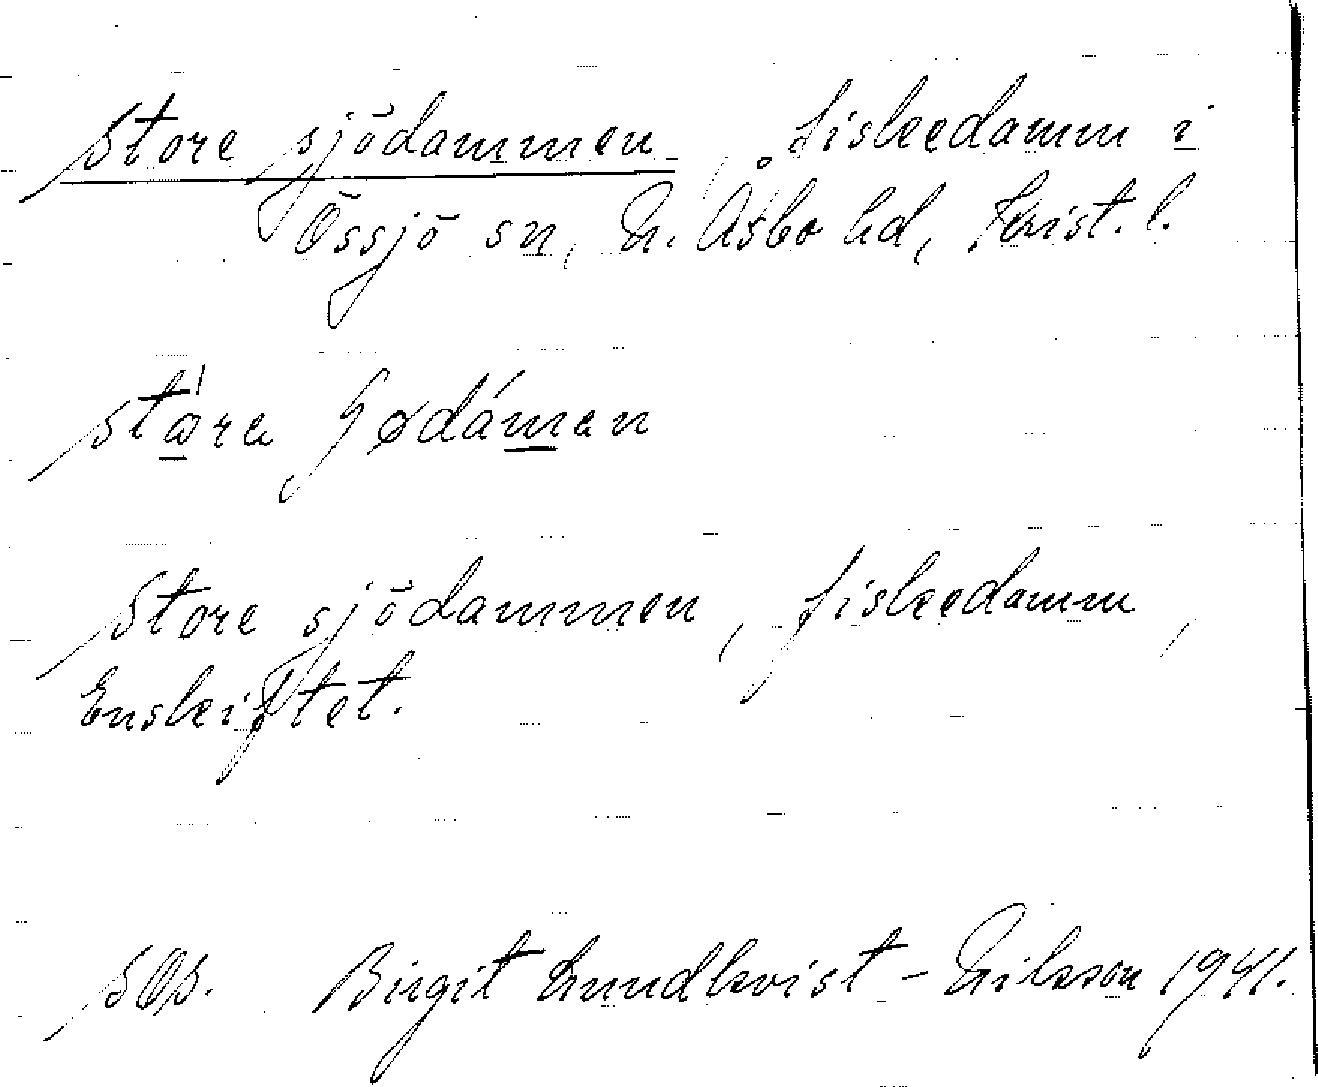 Store sjödammen, fiskedamm i
Össjö sn, N. Åsbo hd, Krist. l.
Store sjödammen, fiskedamm,
Enskiftet.
Birgit Lundkvist-Nilsson 1941.